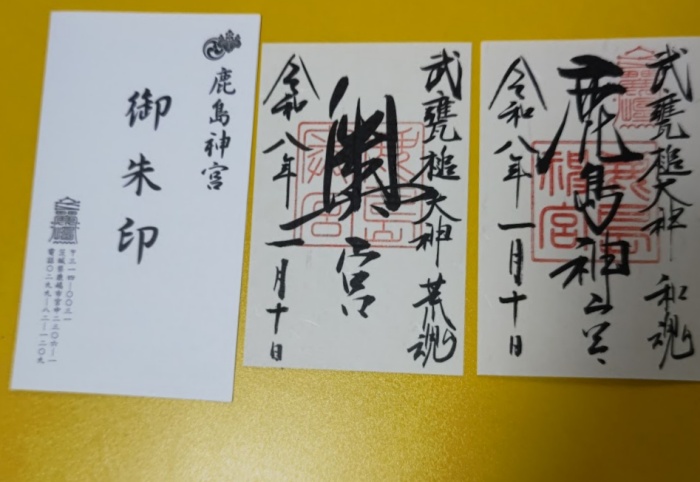 鹿島神宮
御朱印
〒三一四-〇〇三一
茨城県鹿嶋市宮中二三〇六-一
電話〇二九九-八二-一二〇九
武甕槌大神 荒魂
奥宮
令和八年一月十日
武甕槌大神 和魂
鹿島神宮
令和八年一月十日